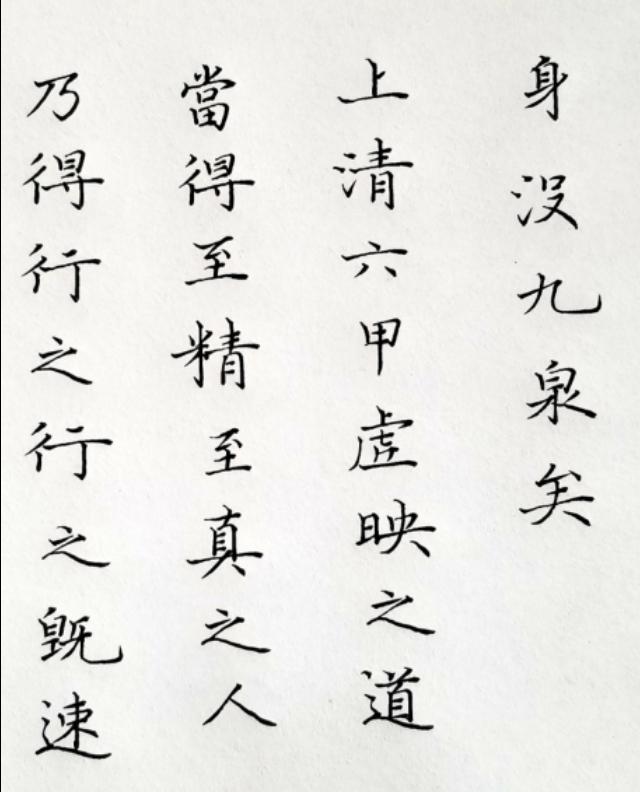 身没九泉矣
上清六甲虚映之道
當得至精至真之人
乃得行之行之既速